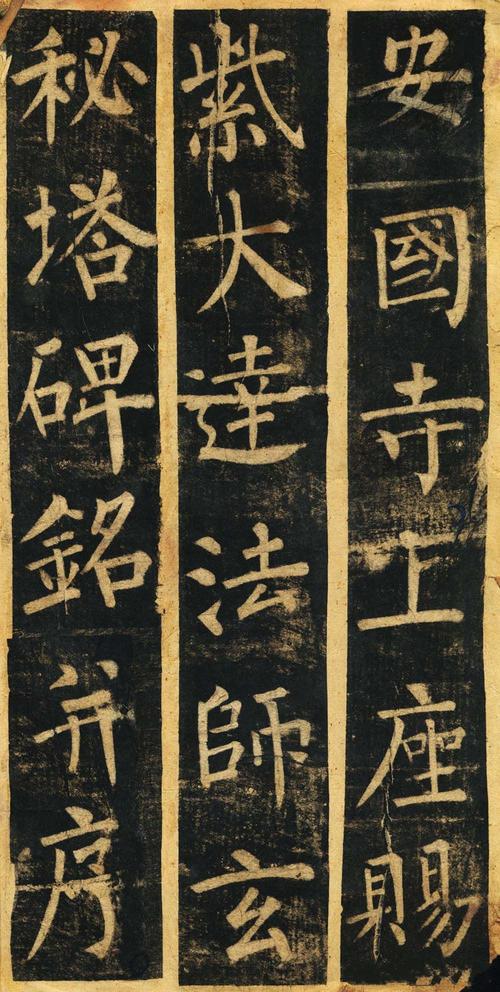 安國寺上座賜
紫大達法師玄
秘塔碑銘并序